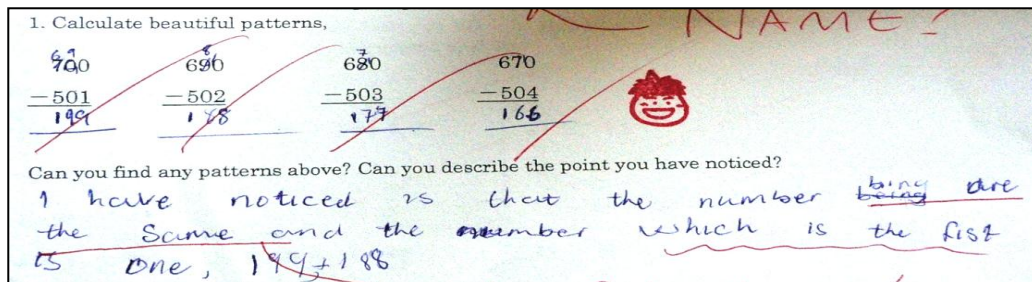 NAME?
1. Calculate beautiful patterns,
700 690 680 670
−501 −502 −503 −504
199 188 177 166
Can you find any patterns above? Can you describe the point you have noticed?
I have noticed is that the number being are
the same and the number which is the fist
is one, 199, 188